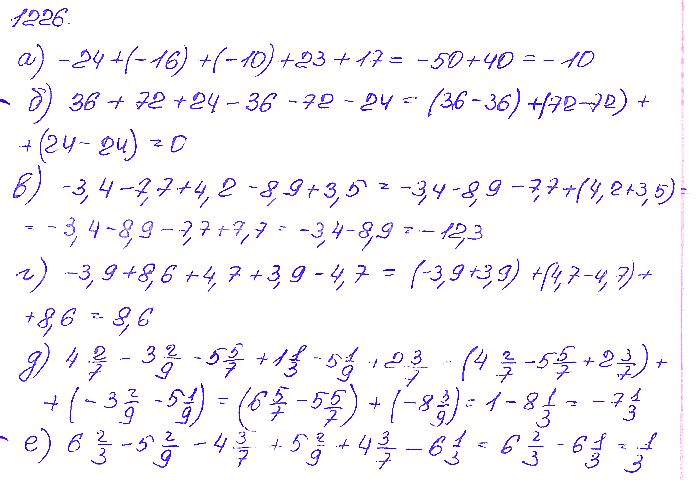 1226.
а) -24+(-16)+(-10)+23+17= -50+40=-10
б) 36+72+24-36-72-24=(36-36)+(72-72)+
+(24-24)=0
в) -3,4-7,7+4,2-8,9+3,5=-3,4-8,9-7,7+(4,2+3,5)=
=-3,4-8,9-7,7+7,7=-3,4-8,9=-12,3
г) -3,9+8,6+4,7+3,9-4,7=(-3,9+3,9)+(4,7-4,7)+
+8,6=8,6
д) 4 2/7 - 3 2/9 - 5 5/7 + 1 1/3 - 5 1/9 + 2 3/7 = (4 2/7 - 5 5/7 + 2 3/7)+
+(-3 2/9 - 5 1/9)=(6 5/7 - 5 5/7)+(-8 3/9)=1-8 1/3=-7 1/3
е) 6 2/3 - 5 2/9 - 4 3/7 + 5 2/9 + 4 3/7 - 6 1/3 = 6 2/3 - 6 1/3 = 1/3